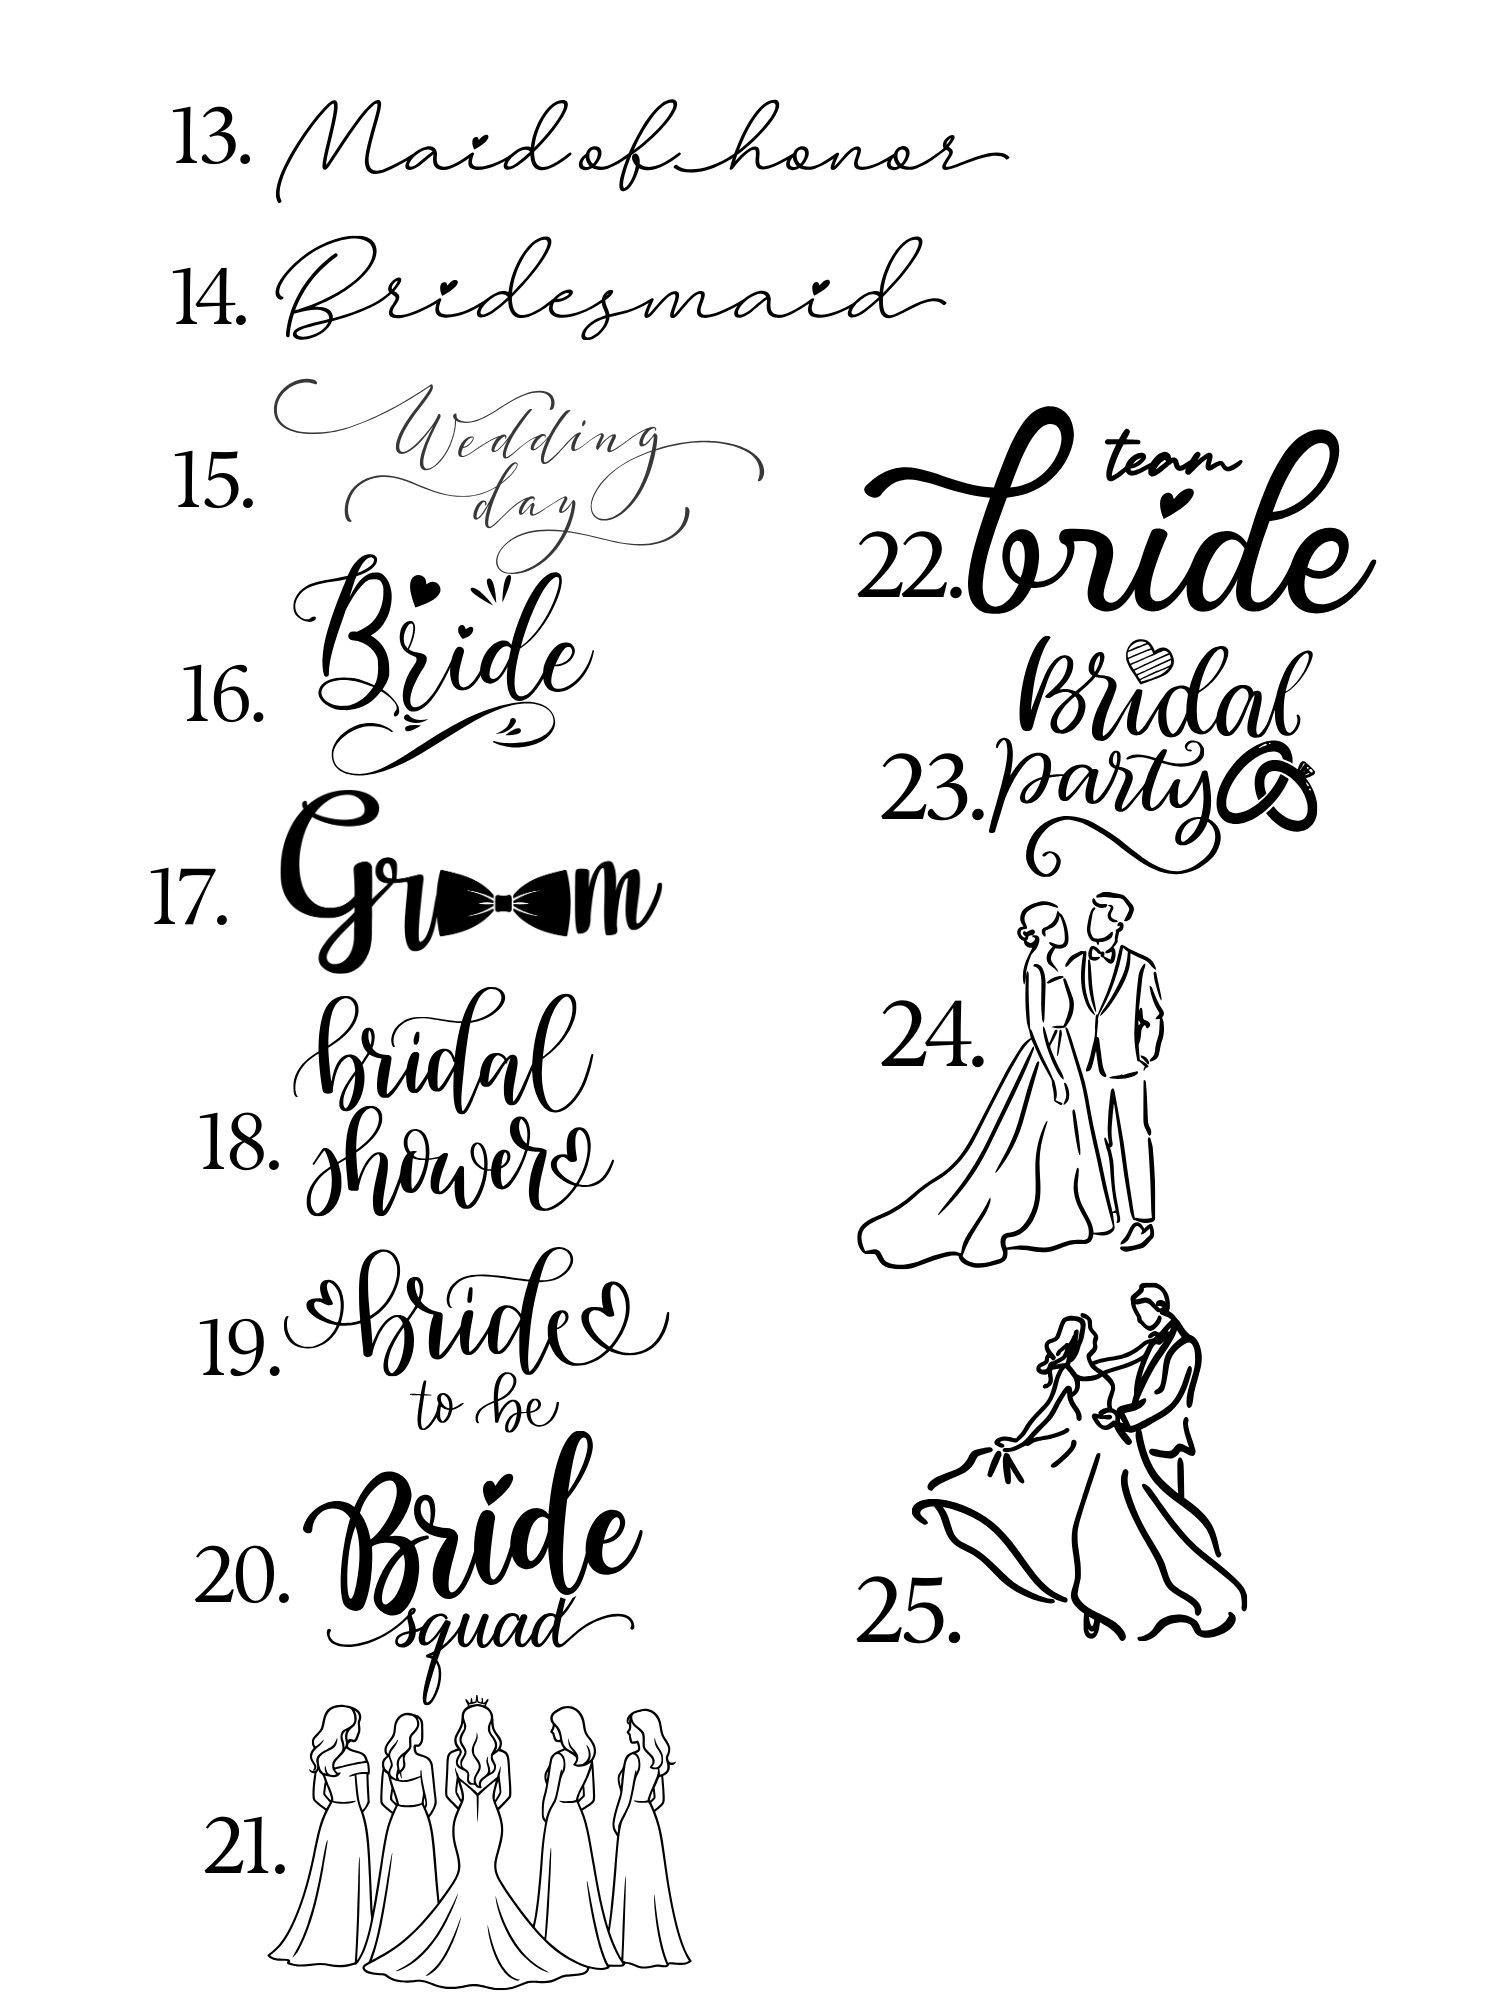 13. Maid of honor
14. Bridesmaid
15. Wedding
day
16. Bride
17. Grm
18. bridal
shower
19. bride
to be
20. Bride
squad
21.
22. team
bride
23. Bridal
party
24.
25.